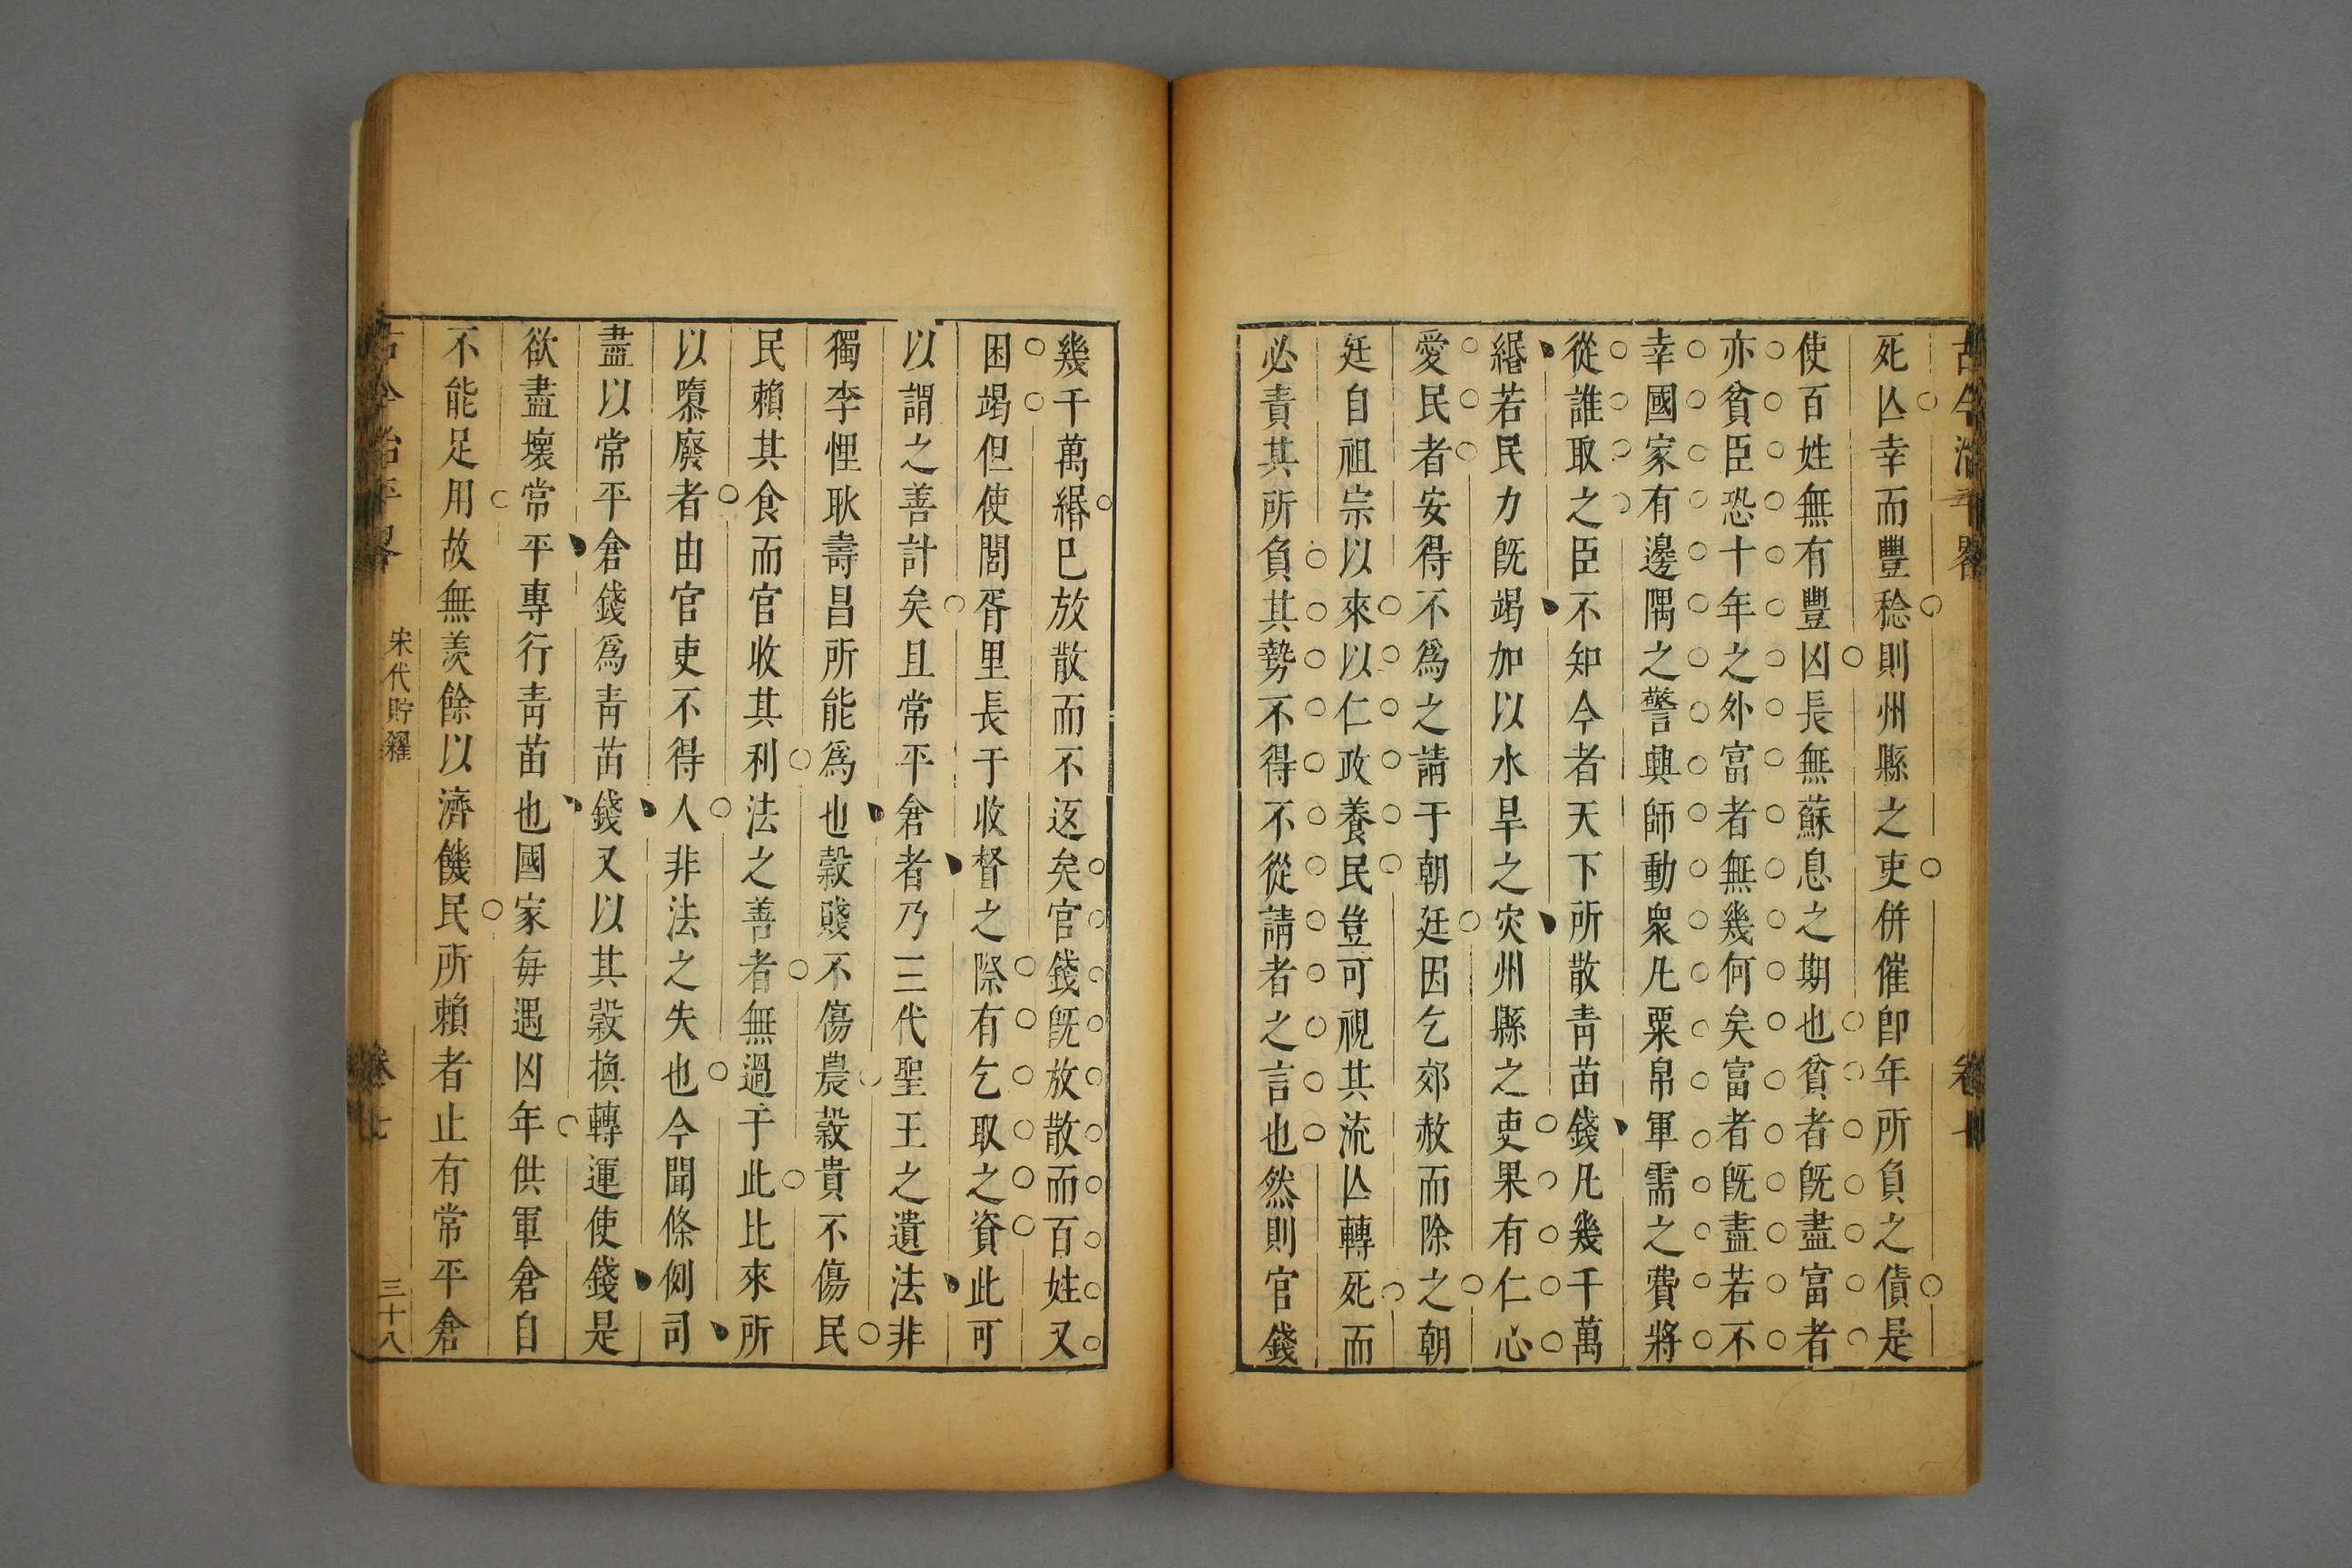 古今治平畧
卷
死亾幸而豐稔則州縣之吏併催卽年所負之債是
使百姓無有豐凶長無蘇息之期也貧者旣盡富者
亦貧臣恐十年之外富者無幾何矣富者旣盡若不
幸國家有邊隅之警興師動衆凢粟帛軍需之費將
從誰取之臣不知今者天下所散靑苗錢凢幾千萬
緡若民力旣竭加以水旱之災州縣之吏果有仁心
愛民者安得不爲之請于朝廷因乞郊赦而除之朝
廷自祖宗以來以仁政養民豈可視其流亾轉死而
必責其所負其勢不得不從請者之言也然則官錢
幾千萬緡巳放散而不返矣官錢旣放散而百姓又
困竭但使閭胥里長于收督之際有乞取之資此可
以謂之善計矣且常平倉者乃三代聖王之遺法非
獨李悝耿壽昌所能爲也穀賤不傷農穀貴不傷民
民賴其食而官收其利法之善者無過于此比來所
以隳廢者由官吏不得人非法之失也今聞條例司
盡以常平倉錢爲靑苗錢又以其穀換轉運使錢是
欲盡壞常平專行靑苗也國家每遇凶年供軍倉自
不能足用故無羡餘以濟饑民所賴者止有常平倉
古今治平畧
宋代貯糴
卷七
三十八